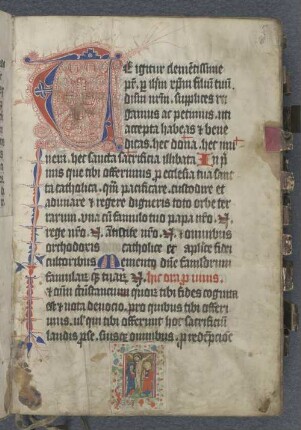 E igitur clementissime
pr̄. p̄ ihm̄ xp̄m filiū tuū.
dn̄m nr̄m. supplices ro
gamus ac petimus. uti
accepta habeas ⁊ bene
dicas. hec dona. hec mu
nera. hec sancta sacrificia illibata. In p̄
mis que tibi offerimus p̄ ecclesia tua san̄
ta catholica. quā pacificare. custodire et
adunare ⁊ regere digneris toto orbe ter
rarum. vna cū famulo tuo papa nr̄o. N.
⁊ rege nr̄o. N. Antistite nr̄o. N. ⁊ omnibus
orthodoxis catholice et apl̄ice fidei
cultoribus Memento dn̄e famulorum
famularūq̄ tuarū. N. hic ora p̄ uiuis.
⁊ om̄ circūstancium quorū tibi fides cognita
est ⁊ nota deuocio. pro quibus tibi offeri
mus. uel qui tibi offerunt hoc sacrificiū
laudis p̄ se. suisq̄ omnibus. p̄ redēpcōe